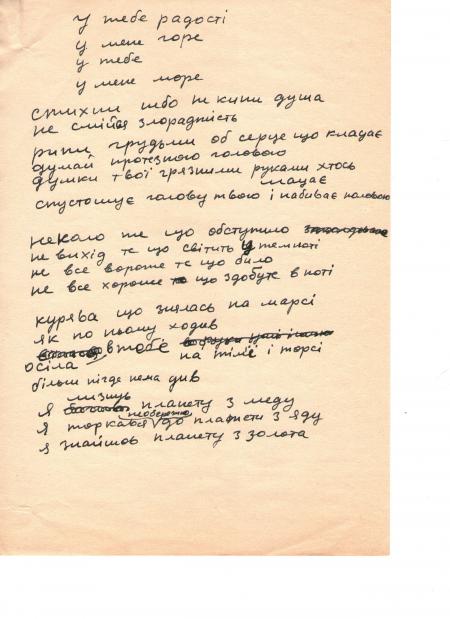 у тебе радості
у мене горе
у тебе
у мене море
стихии небо ти кини душа
не смійся злорадність
рипи грудьми об серце що клацає
думай протезною головою
думки твої грязними руками хтось
мацає
спустошує голову твою і набиває половою
неколо те що обступило
не вихід те що світить у темноті
не все вороже те що било
не все хороше що здобуте в поті
курява що знялась на марсі
як по ньому ходив
осіла в тобе на тілі і торсі
більш нігде нема див
я лизнув планету з меду
я торкався обережно до планети з яду
я знайшов планету з золота